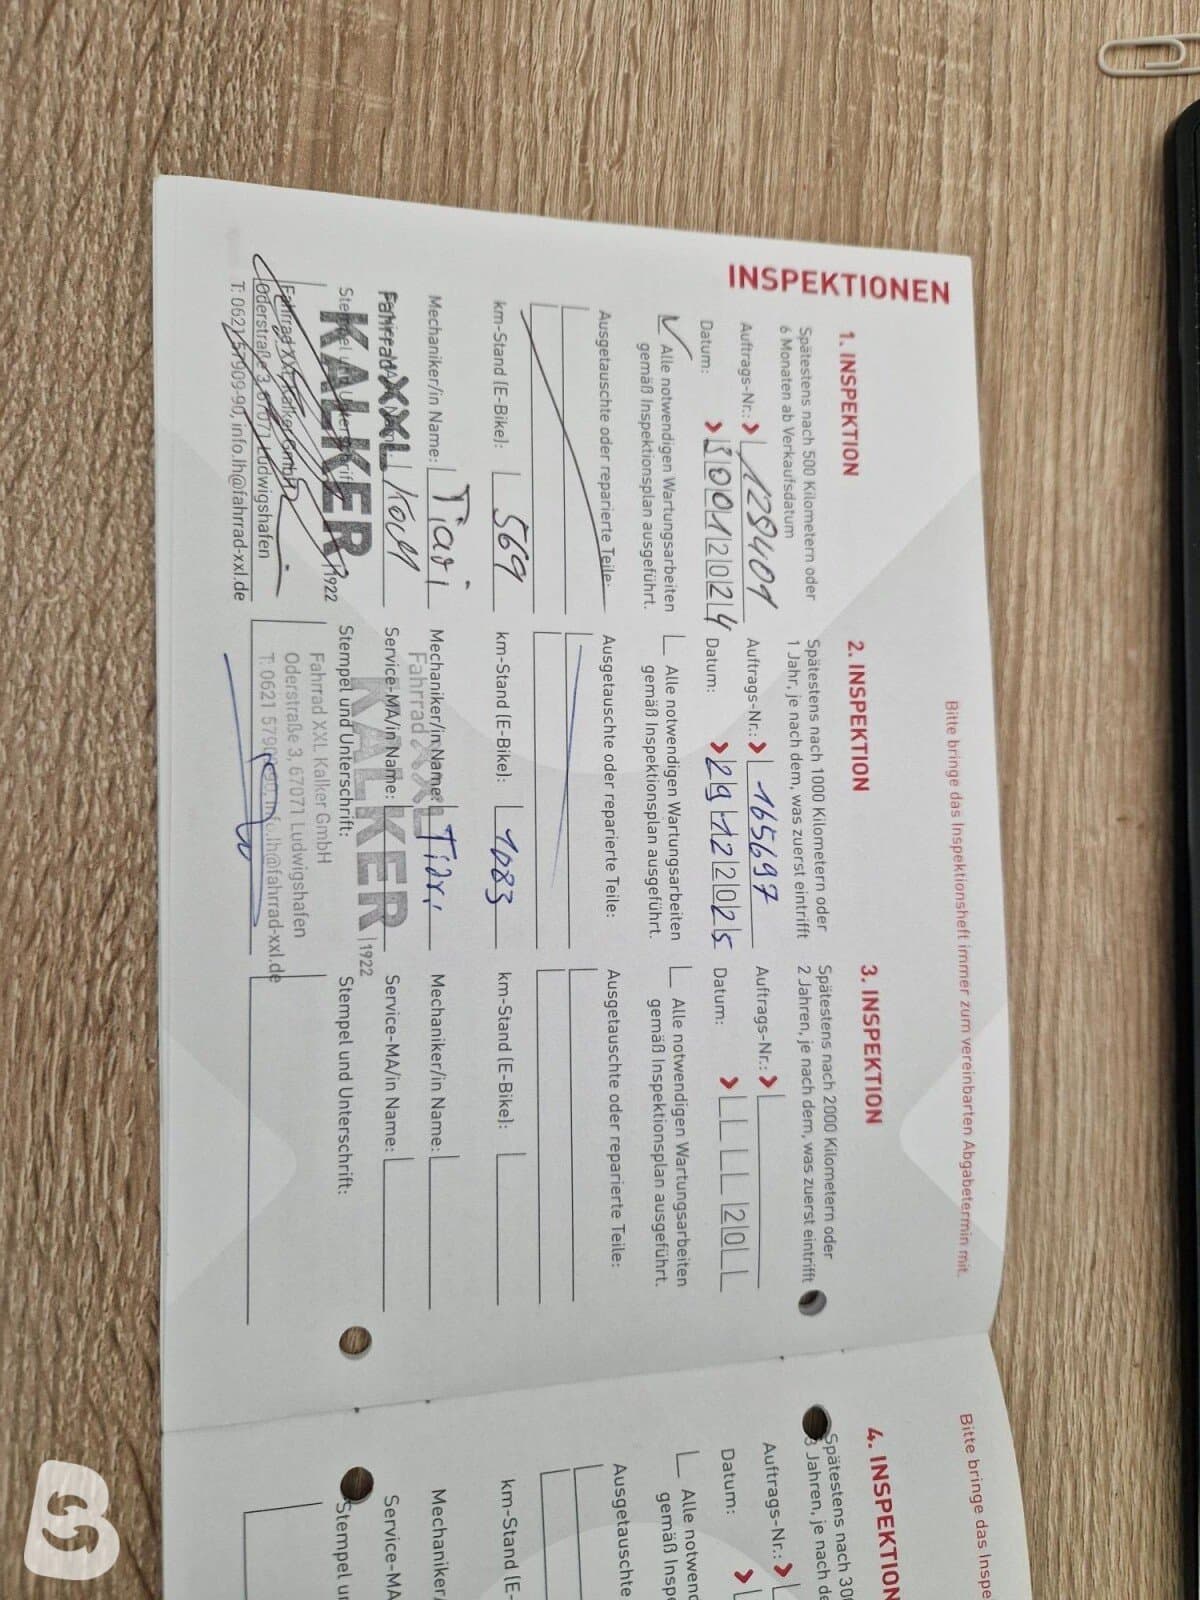 INSPEKTIONEN
Bitte bringe das Inspektionsheft immer zum vereinbarten Abgabetermin mit.
1. INSPEKTION
Spätestens nach 500 Kilometern oder
6 Monaten ab Verkaufsdatum
Auftrags-Nr.: 128401
Datum: 30012024
Alle notwendigen Wartungsarbeiten
gemäß Inspektionsplan ausgeführt.
Ausgetauschte oder reparierte Teile:
km-Stand (E-Bike): 569
Mechaniker/in Name:
Koch
Fahrrad XXL
KALKER 1922
Fahrrad XXL Kalker GmbH
Oderstraße 3, 67071 Ludwigshafen
T: 0621 57909-90, info.lh@fahrrad-xxl.de
2. INSPEKTION
Spätestens nach 1000 Kilometern oder
1 Jahr, je nach dem, was zuerst eintrifft
Auftrags-Nr.: 165697
Datum: 29122025
Alle notwendigen Wartungsarbeiten
gemäß Inspektionsplan ausgeführt.
Ausgetauschte oder reparierte Teile:
km-Stand (E-Bike): 1083
Mechaniker/in Name:
Service-MA/in Name:
Stempel und Unterschrift:
Fahrrad XXL
KALKER 1922
Fahrrad XXL Kalker GmbH
Oderstraße 3, 67071 Ludwigshafen
T: 0621 57909-90, info.lh@fahrrad-xxl.de
3. INSPEKTION
Spätestens nach 2000 Kilometern oder
2 Jahren, je nach dem, was zuerst eintrifft
Auftrags-Nr.:
Datum: 20
Alle notwendigen Wartungsarbeiten
gemäß Inspektionsplan ausgeführt.
Ausgetauschte oder reparierte Teile:
km-Stand (E-Bike):
Mechaniker/in Name:
Service-MA/in Name:
Stempel und Unterschrift:
Bitte bringe das Inspe
4. INSPEKTION
Spätestens nach 300
3 Jahren, je nach de
Auftrags-Nr.:
Datum:
Alle notwend
gemäß Inspe
Ausgetauschte
km-Stand (E-
Mechaniker/
Service-MA
Stempel un